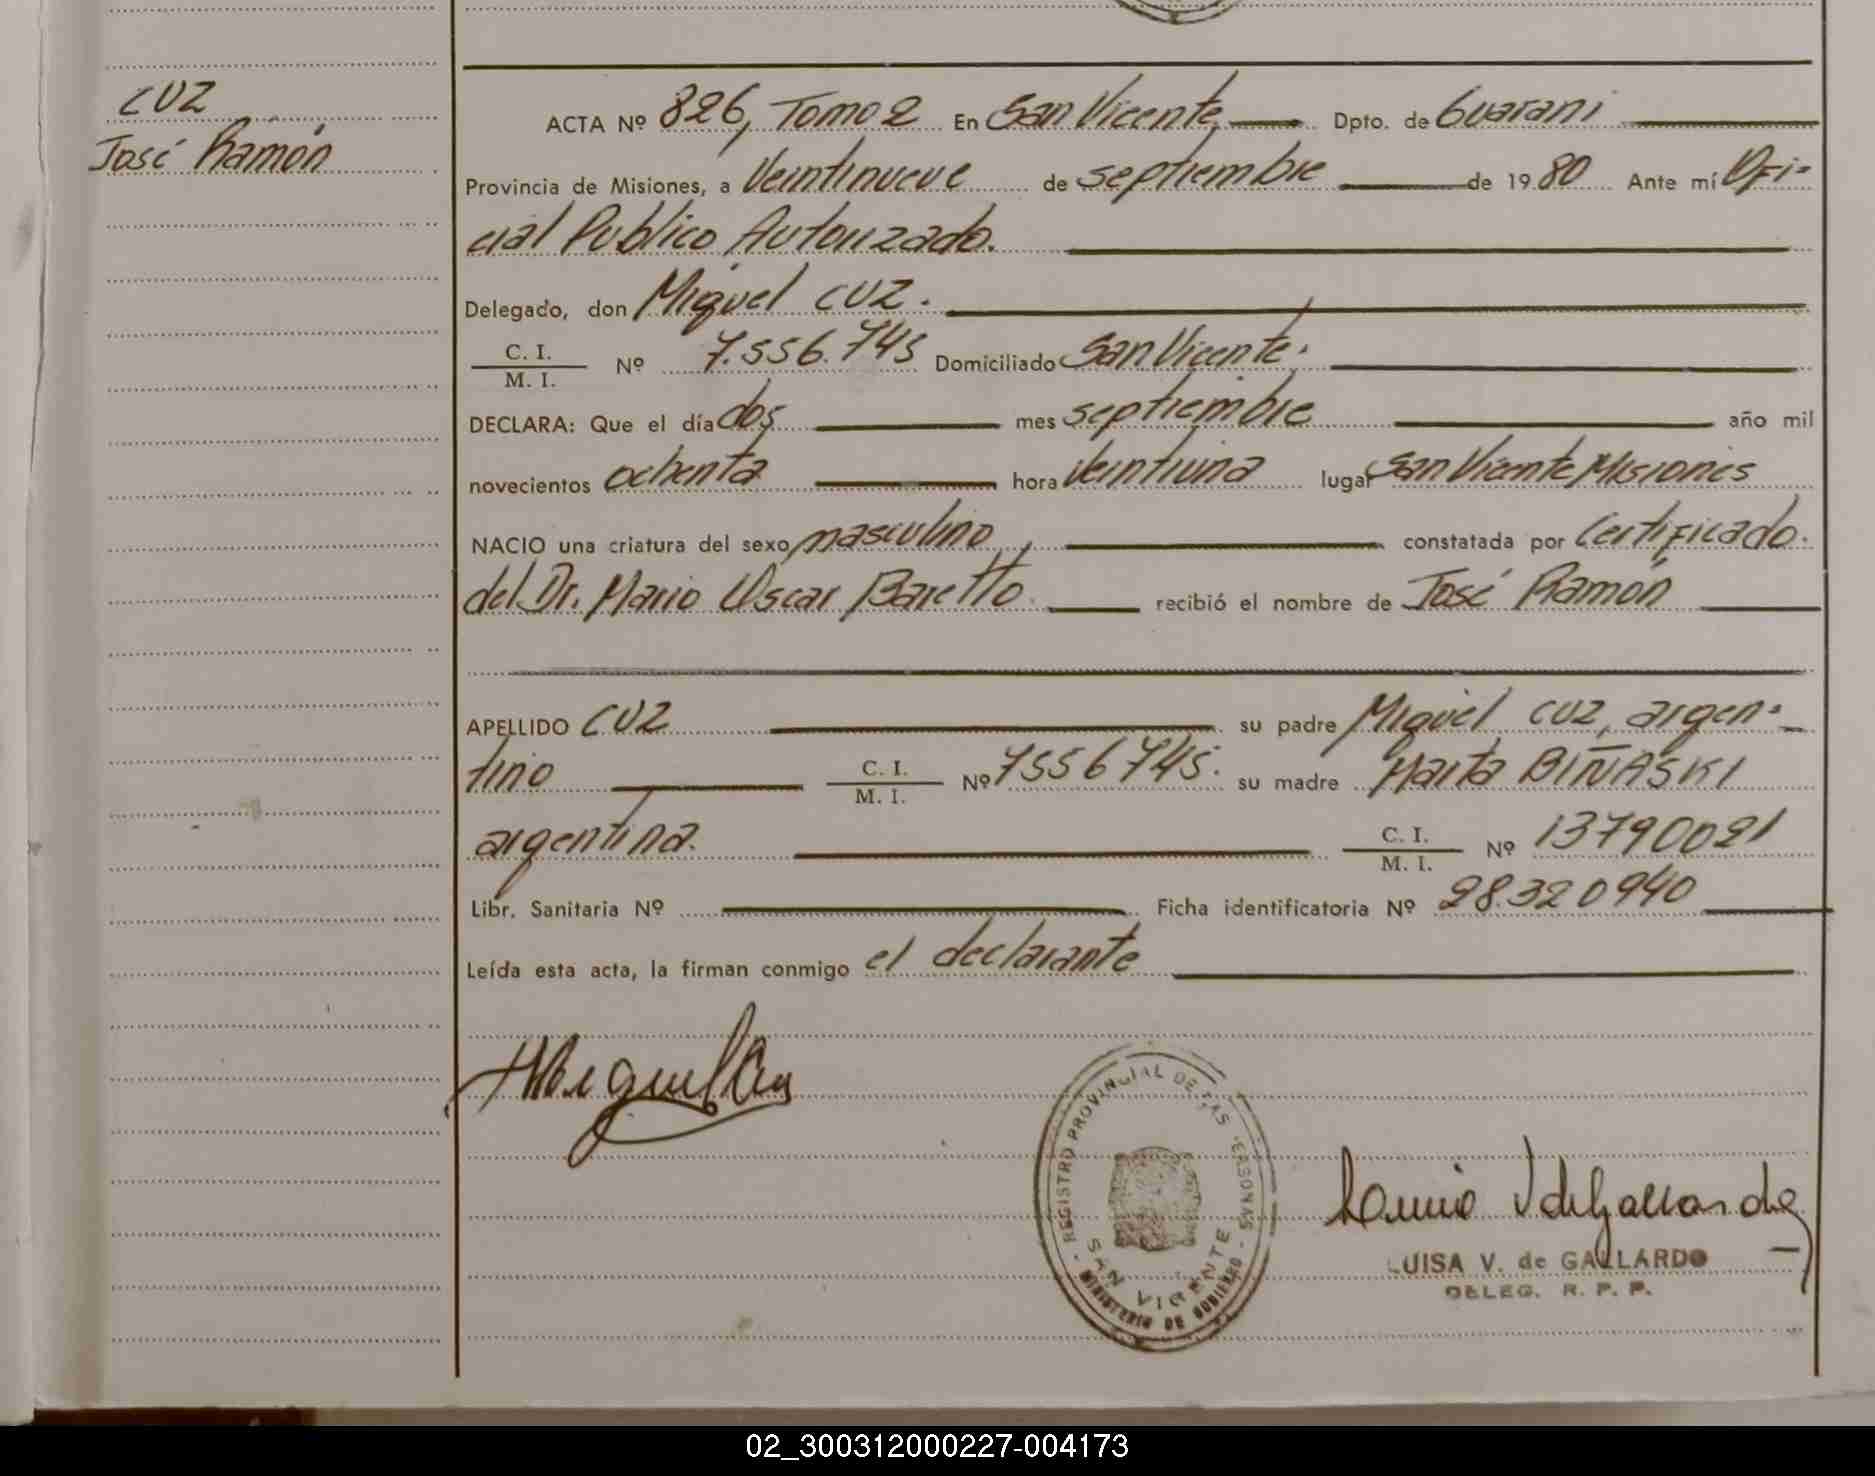 CUZ
José Ramón
ACTA Nº 826, Tomo 2 En San Vicente Dpto. de Guarani
Provincia de Misiones, a Veintinueve de septiembre de 1980 Ante mí Ofi-
cial Publico Autorizado.
Delegado, don Miguel CUZ.
C. I.
M. I.
Nº 7.556.745 Domiciliado San Vicente.
DECLARA: Que el día dos mes septiembre año mil
novecientos ochenta hora Veintiuna lugar San Vicente Misiones
NACIO una criatura del sexo masculino, constatada por Certificado.
del Dr. Mario Oscar Baretto recibió el nombre de José Ramón
APELLIDO CUZ su padre Miguel CUZ, argen-
tino C. I. M. I. Nº 7556745. su madre Marta BIÑASKI
argentina. C. I. M. I. Nº 13790021
Libr. Sanitaria Nº Ficha identificatoria Nº 28.320940
Leída esta acta, la firman conmigo el declarante
REGISTRO PROVINCIAL DE LAS PERSONAS
SAN VICENTE
MINISTERIO DE GOBIERNO
LUISA V. de GALLARDO
DELEG. R. P. P.
02_300312000227-004173